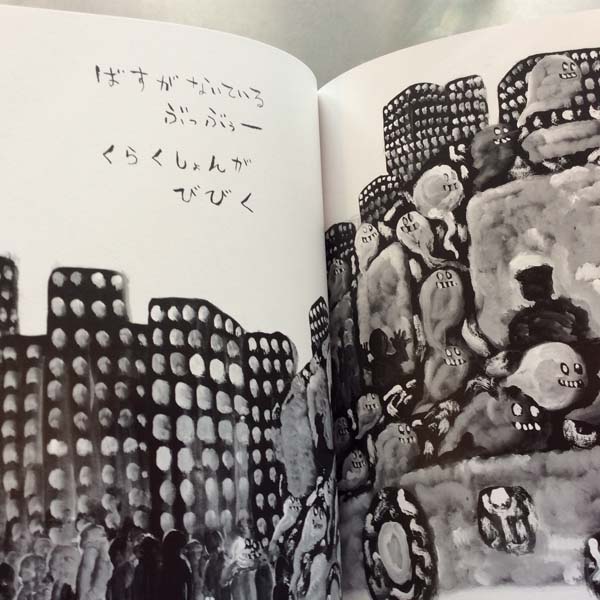 ばすがないている
ぶっぶぅー
くらくしょんが
びびく